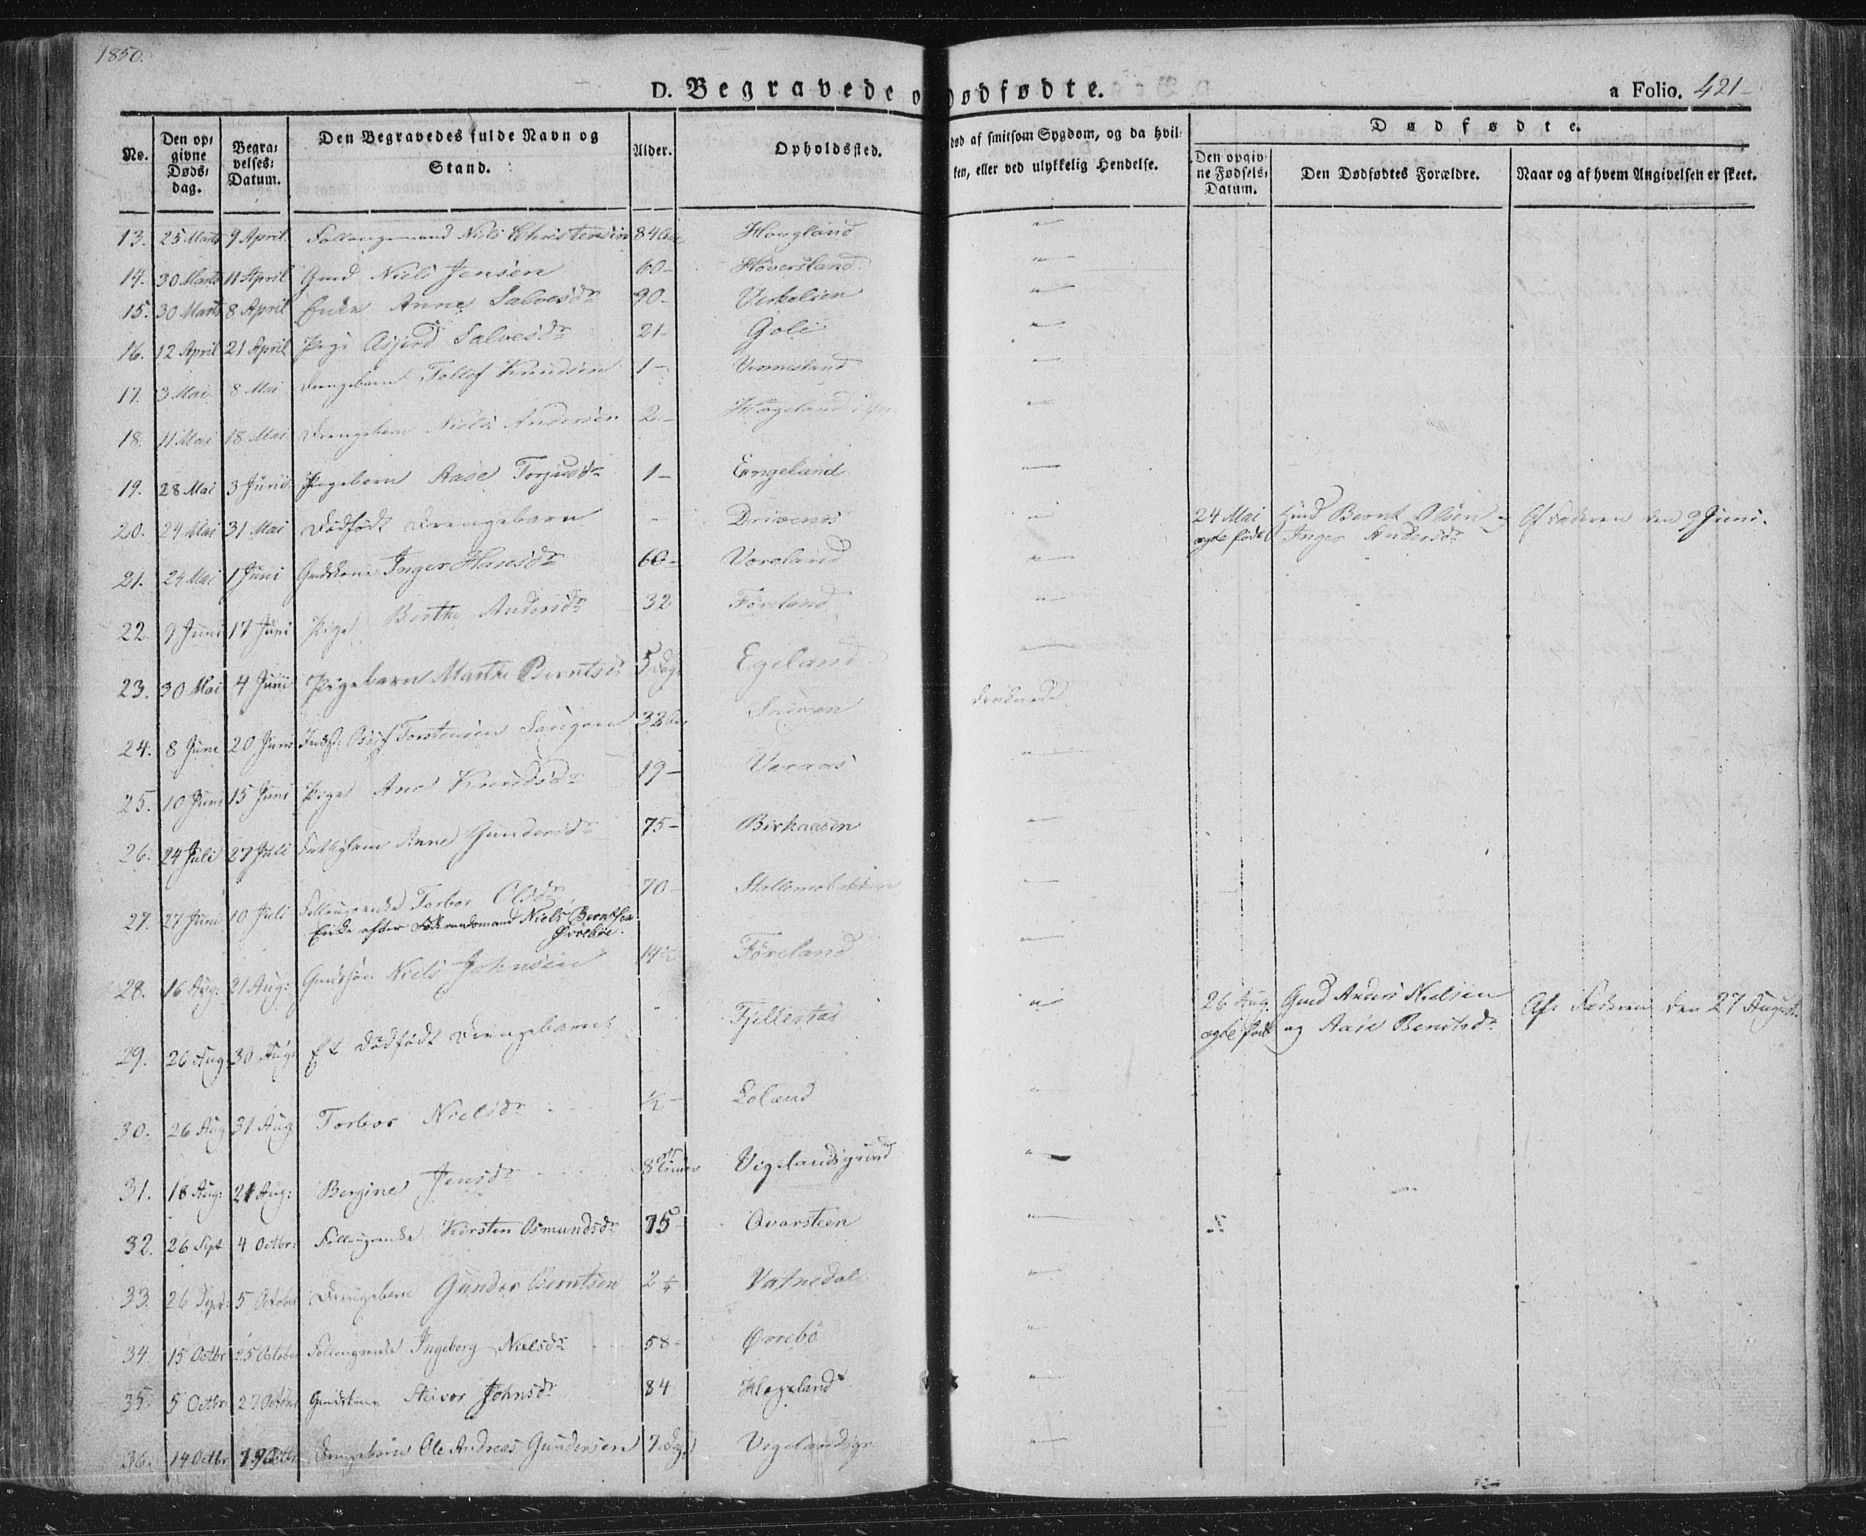 1850.
D. Begravede o Dødfødte.
a Folio. 421
No.
Den opgivne Dødsdag.
Begravelses-Datum.
Den Begravedes fulde Navn og Stand.
Alder.
Opholdssted.
død af smitsom Sygdom, og da hvilken, eller ved ulykkelig Hendelse.
Dødfødte.
Den opgivne Fødsels-Datum.
Den Dødfødtes Forældre.
Naar og af hvem Angivelsen er skeet.
13. 25 Marts 9 April Niels Christensen 84 Hougland
14. 30 Marts 11 April Gmd Niels Jensen 60 - Höversland
15. 30 Marts 8 April Enke Anne Salvesdr 90 - Verkelien
16. 12 April 21 April Pige Asjerd Salvesdr 21 - Goli
17. 3 Mai 8 Mai Drengebarn Tollef Knudsen 1 - Vennesland
18. 11 Mai 18 Mai Drengebarn Niels Andersen 2 -
19. 28 Mai 3 Juni Pigebarn Aase Torjusdr 1 - Engeland
20. 24 Mai 31 Mai Dödfödt Drengebarn - Drivenes 24 Mai ægte født Gmd Bernt Olsen og Inger Andersdr Af Faderen den 9 Juni.
21. 24 Mai 1 Juni Gmdskone Inger Hansdr 60 - Voreland
22. 9 Juni 17 Juni Pige Berthe Andersdr 32 Föreland
23. 30 Mai 4 Juni Pigebarn Marthe Berntsd 5 Dage Egeland
24. 8 Juni 20 Juni Torstensen 32 Druknede
25. 10 Juni 15 Juni Pige Ane Knudsdr 19 - Verraas
26. 24 Juli 27 Juli Anne Gundersdr 75 - Birkaasen
27. 27 Juni 10 Juli Torbor Olsdr 70 -
Enke efter Niels Berntsen Øvrebøe.
28. 16 Aug: 21 Aug: Gmdssön Niels Johnsen 14½ Föreland
29. 26 Aug 30 Aug: Et Dödfödt Drengebarn - Fjellestad 26 Aug. ægte født Gmd Anders Nielsen og Aase Berntsdr Af Faderen den 27 August.
30. 26 Aug 31 Aug Torbor Nielsdr ½ - Loland
31. 18 Aug: 21 Aug: Bergine Jensdr 8 Vigelandsgrund
32. 26 Sept 4 Octbr: Kirsten Osmundsdr 75 - Qvarsteen
33. 26 Sept: 5 October Drengebarn Gunder Berntsen 2¼ Vatnedal
34. 15 Octbr 25 October Ingeborg Nielsdr 58 - Øvrebö
35. 5 Octbr: 27 Octbr Gmdskone Siver Johnsdr 84 Hægeland
36. 14 Octbr 19 Octbr Drengebarn Ole Andreas Gundersen 7 Dage Vigelandsgr